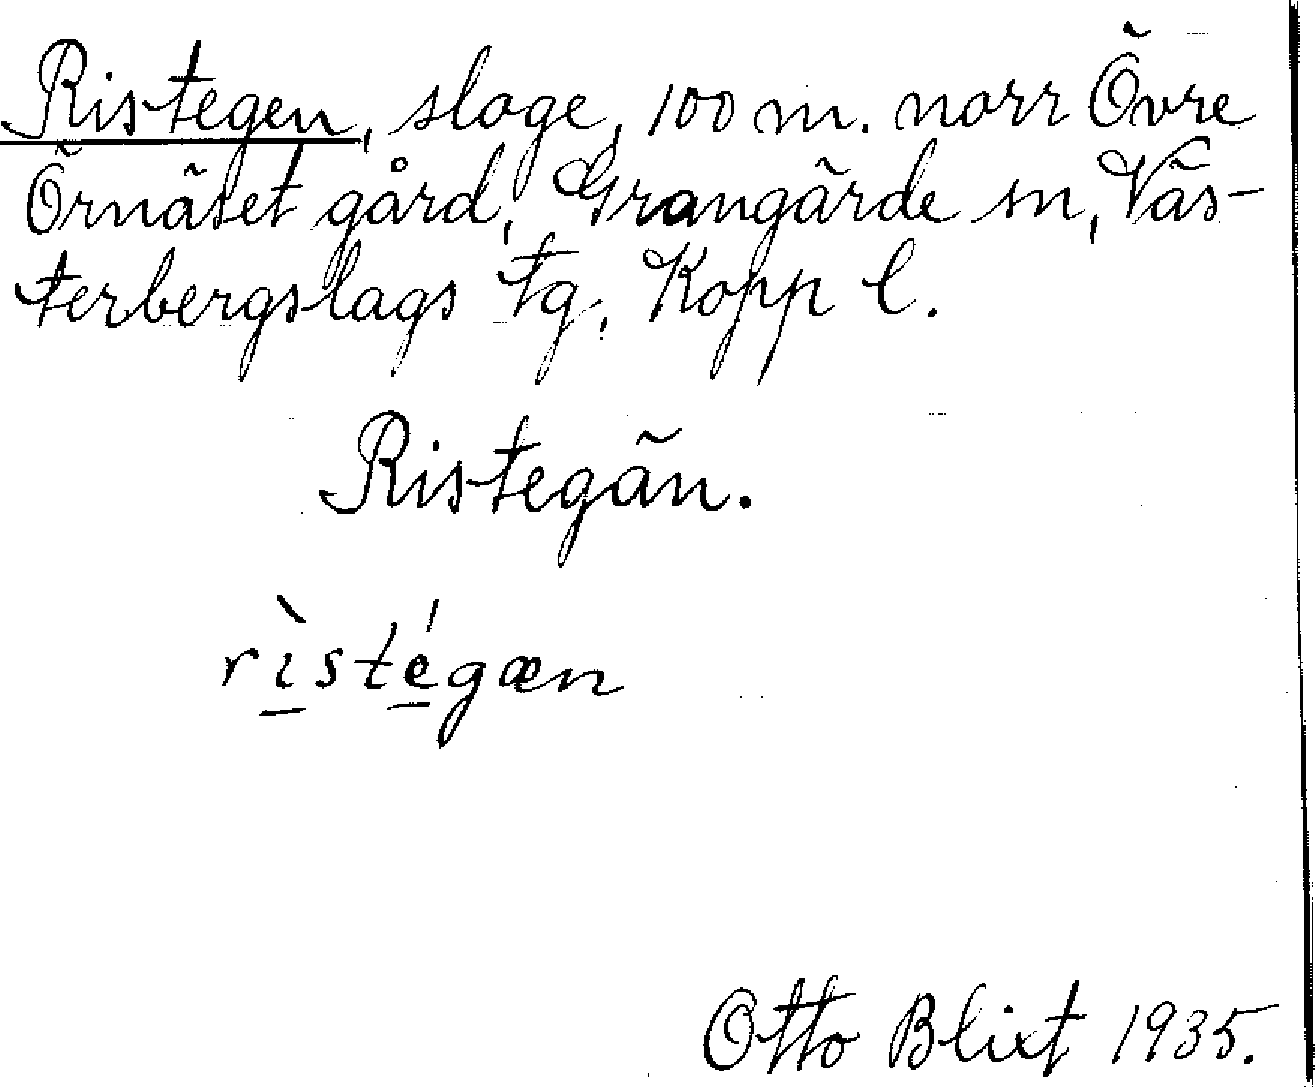 Ristegen, sloge, 100 m. norr Övre
Örnäset gård, Grangärde sn, Väs-
terbergslags tg, Kopp l.
Ristegän.
rìstégæn
Otto Blixt 1935.